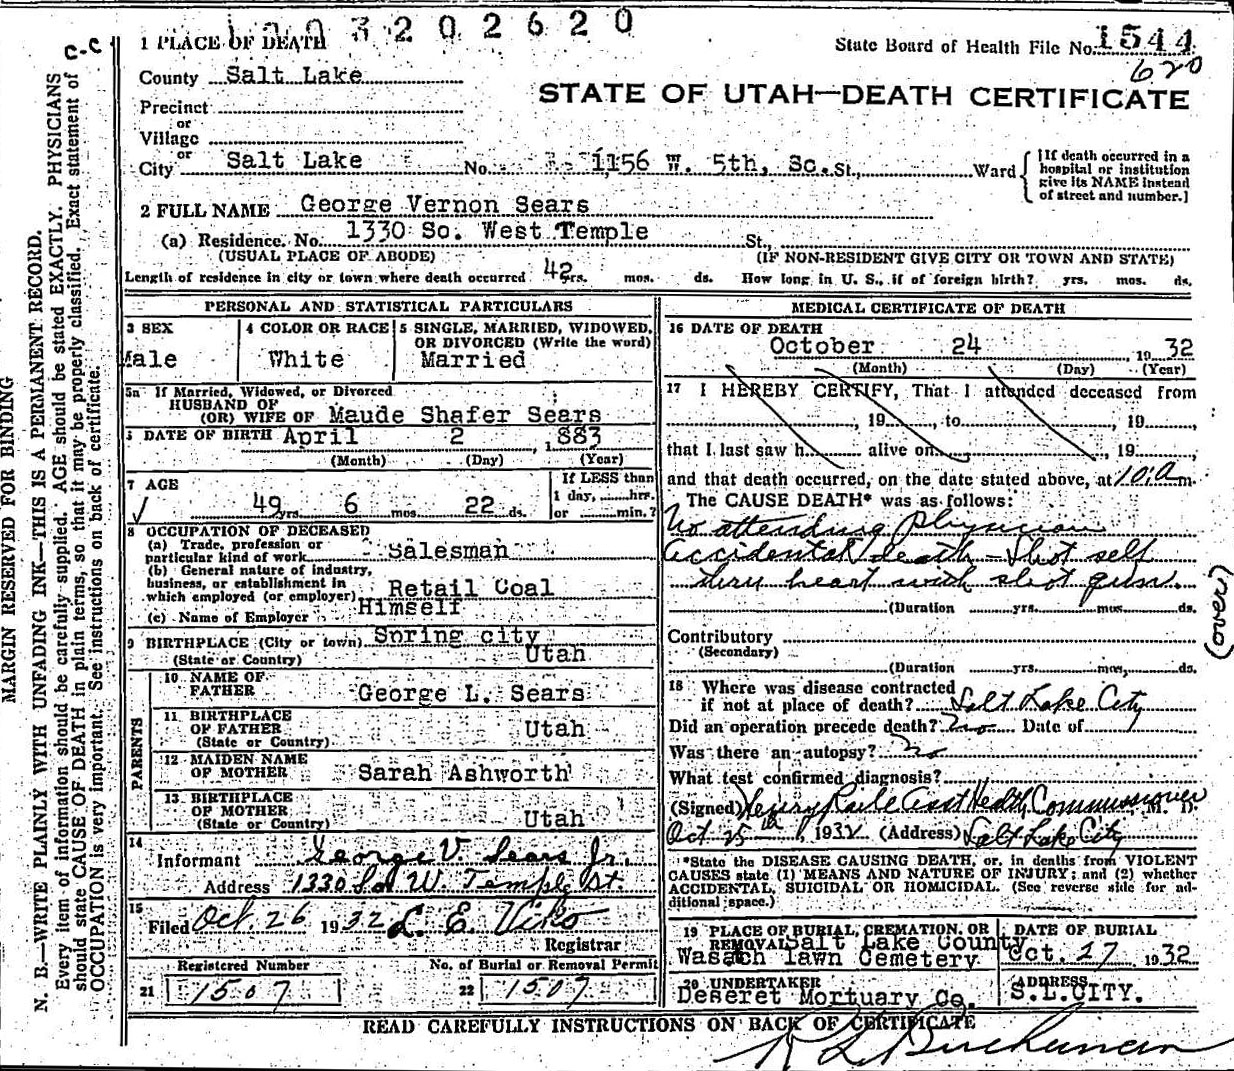 3 2 0 2 6 2 0
1 PLACE OF DEATH
State Board of Health File No. 1544
620
C-C
County Salt Lake
STATE OF UTAH—DEATH CERTIFICATE
Precinct
or
Village
or
City Salt Lake No. 1156 W. 5th, So. St., Ward
[If death occurred in a
hospital or institution
give its NAME instead
of street and number.]
2 FULL NAME George Vernon Sears
(a) Residence. No. 1330 So. West Temple St.,
(USUAL PLACE OF ABODE) (IF NON-RESIDENT GIVE CITY OR TOWN AND STATE)
Length of residence in city or town where death occurred 42 yrs. mos. ds. How long in U. S., if of foreign birth? yrs. mos. ds.
PERSONAL AND STATISTICAL PARTICULARS
3 SEX
Male
4 COLOR OR RACE
White
5 SINGLE, MARRIED, WIDOWED,
OR DIVORCED (Write the word)
Married
5a If Married, Widowed, or Divorced
HUSBAND OF
(OR) WIFE OF Maude Shafer Sears
DATE OF BIRTH April 2, 1883
(Month) (Day) (Year)
7 AGE
49 yrs. 6 mos. 22 ds.
If LESS than
1 day, hrs.
or min.?
8 OCCUPATION OF DECEASED
(a) Trade, profession or
particular kind of work Salesman
(b) General nature of industry,
business, or establishment in
which employed (or employer) Retail Coal
(c) Name of Employer Himself
9 BIRTHPLACE (City or town) Spring city
(State or Country) Utah
PARENTS
10 NAME OF
FATHER George L. Sears
11 BIRTHPLACE
OF FATHER
(State or Country) Utah
12 MAIDEN NAME
OF MOTHER Sarah Ashworth
13 BIRTHPLACE
OF MOTHER
(State or Country) Utah
14
Informant George V. Sears Jr.
Address 1330 So. W. Temple St.
15
Filed Oct. 26 1932 L. E. Viko
Registrar
Registered Number
21 1507
No. of Burial or Removal Permit
22 1507
MEDICAL CERTIFICATE OF DEATH
16 DATE OF DEATH
October 24, 1932
(Month) (Day) (Year)
17 I HEREBY CERTIFY, That I attended deceased from
, 19 , to , 19 ,
that I last saw h alive on , 19
and that death occurred, on the date stated above, at 10:a m.
The CAUSE DEATH* was as follows:
No attending physician
accidental death - shot self
thru heart with shot gun.
(Duration yrs. mos. ds.
Contributory
(Secondary)
(Duration yrs. mos. ds.
(over)
18 Where was disease contracted
if not at place of death? Salt Lake City
Did an operation precede death? No Date of
Was there an autopsy? No
What test confirmed diagnosis?
(Signed) Asst Health Commissioner M. D.
Oct 25th, 1932 (Address) Salt Lake City
*State the DISEASE CAUSING DEATH, or, in deaths from VIOLENT
CAUSES state (1) MEANS AND NATURE OF INJURY; and (2) whether
ACCIDENTAL, SUICIDAL OR HOMICIDAL. (See reverse side for ad-
ditional space.)
19 PLACE OF BURIAL, CREMATION, OR
REMOVAL Salt Lake County
Wasatch lawn Cemetery
DATE OF BURIAL
Oct. 27 1932
20 UNDERTAKER
Deseret Mortuary Co.
ADDRESS
S.L.CITY.
READ CAREFULLY INSTRUCTIONS ON BACK OF CERTIFICATE
R L Buchanan
MARGIN RESERVED FOR BINDING
N. B.—WRITE PLAINLY WITH UNFADING INK—THIS IS A PERMANENT RECORD.
Every item of information should be carefully supplied. AGE should be stated EXACTLY. PHYSICIANS
should state CAUSE OF DEATH in plain terms, so that it may be properly classified. Exact statement of
OCCUPATION is very important. See instructions on back of certificate.